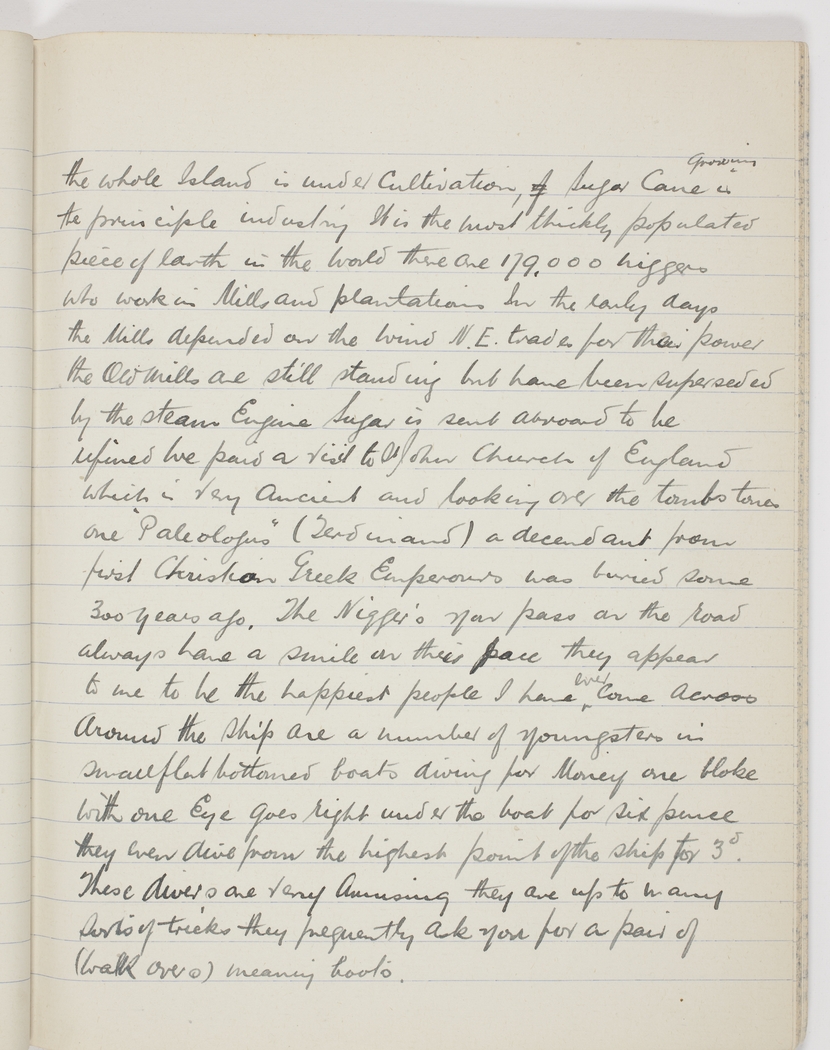 the whole Island is under Cultivation, Sugar Cane growing is
the principle industry It is the most thickly populated
piece of Earth in the World there are 179,000 niggers
who work in Mills and plantations In the early days
the Mills depended on the Wind N.E. trades for their power
the Old Mills are still standing but have been superseded
by the steam Engine Sugar is sent abroad to be
refined We paid a visit to St John Church of England
which is very Ancient and looking over the tombstones
one "Paleologus" (Ferdinand) a decendant from
first Christian Greek Emperours was buried some
300 years ago. The Nigger's you pass on the road
always have a smile on their face they appear
to me to be the happiest people I have ever Come Across
Around the ship are a number of youngsters in
small flat bottomed boats diving for Money one bloke
with one Eye goes right under the boat for six pence
they even dive from the highest point of the ship for 3d.
These divers are very Amusing they are up to many
sorts of tricks they frequently ask you for a pair of
(walk overs) meaning boots.